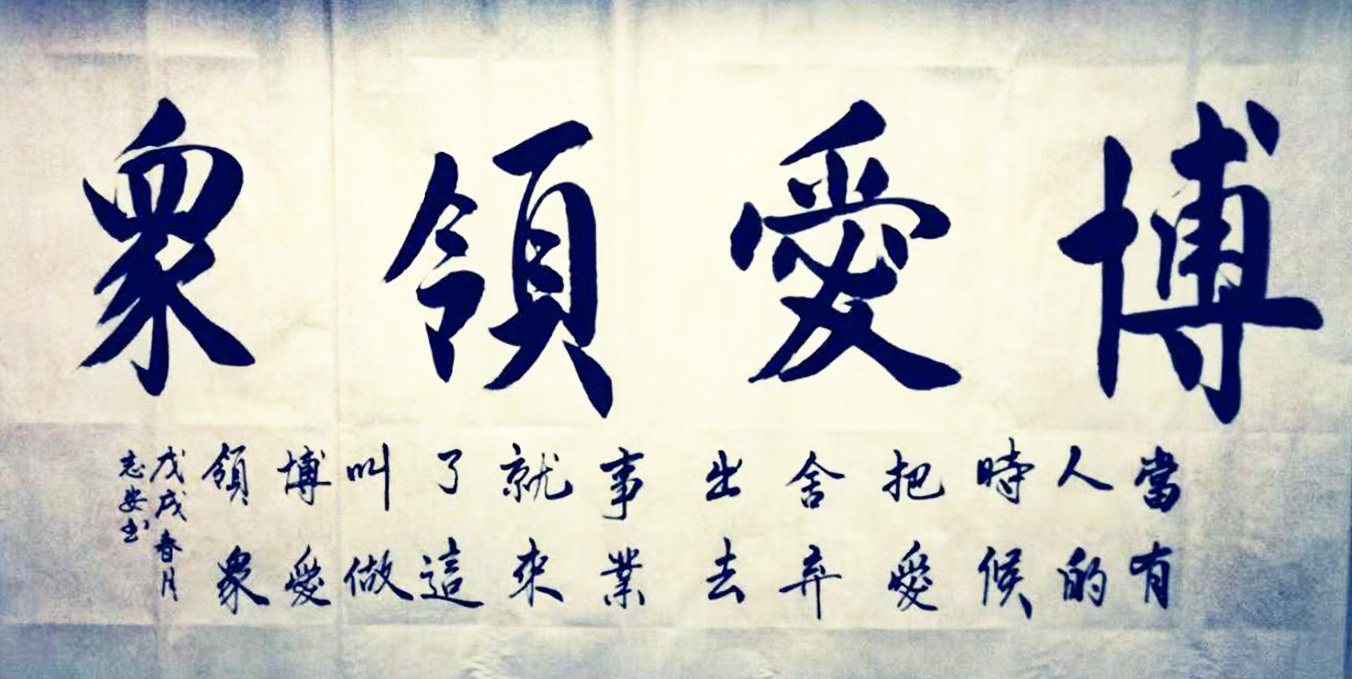 博愛領眾
當有
人的
時候
把愛
舍弃
出去
事業
就來
了這
叫做
博愛
領眾
戊戌春月
志安书